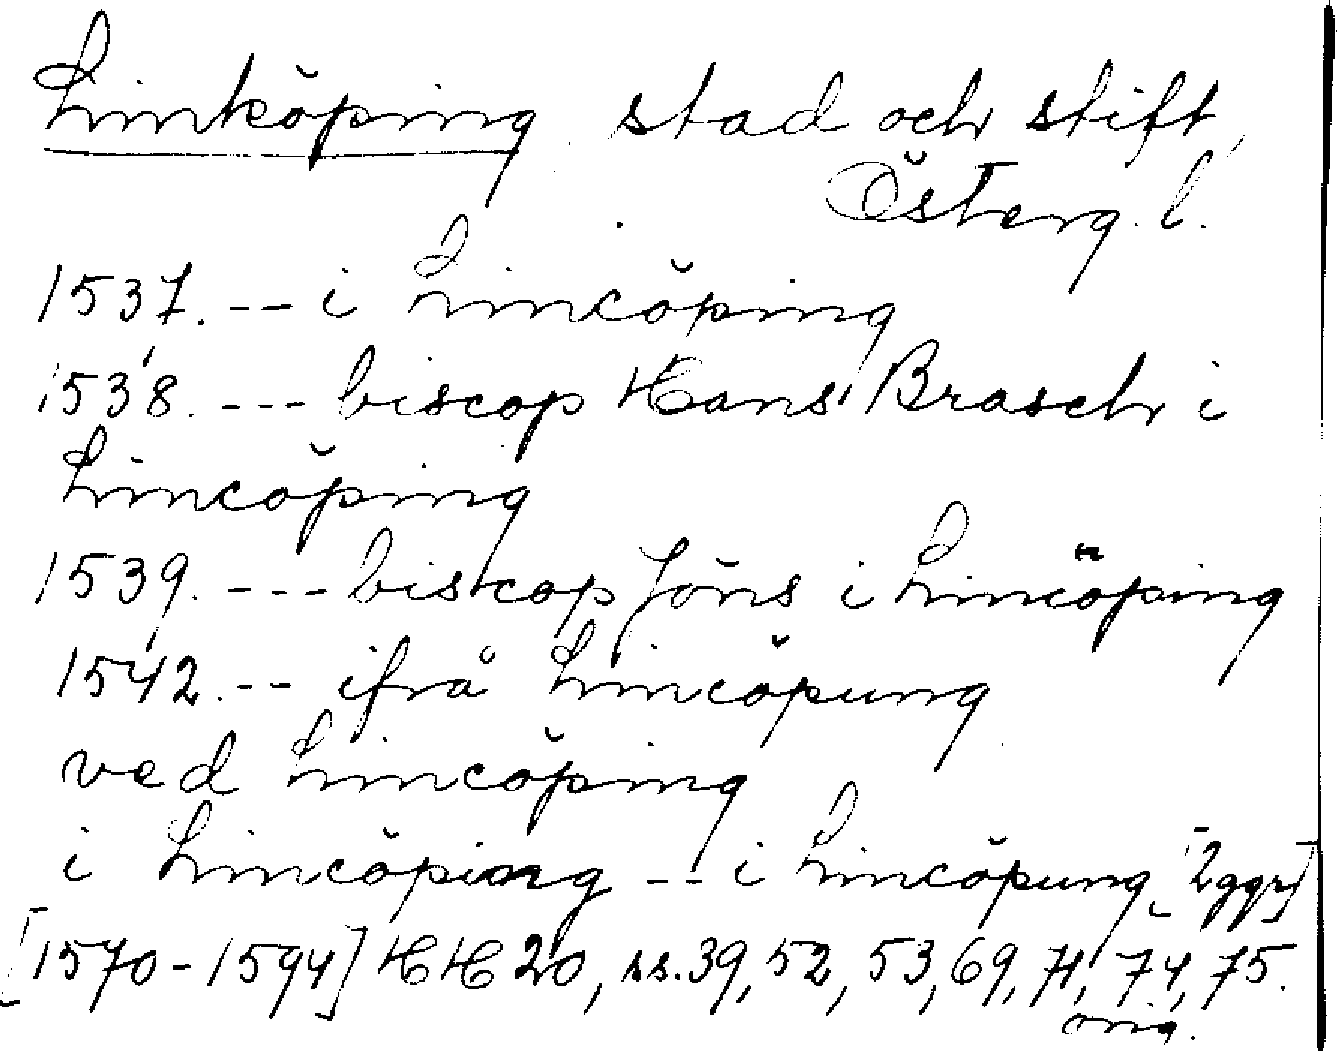 Linköping stad och stift,
Österg. l.
1537. -- i Lincöping
1538. --- biscop Hans Brasch i
Lincöping
1539. --- biscop Jöns i Lincöping
1542. -- ifrå Lincöpung
ved Lincöping
i Lincöping -- i Lincöpung [2 ggr]
[1570-1594] HH 20, ss. 39, 52, 53, 69, 71, 74, 75.
orig.